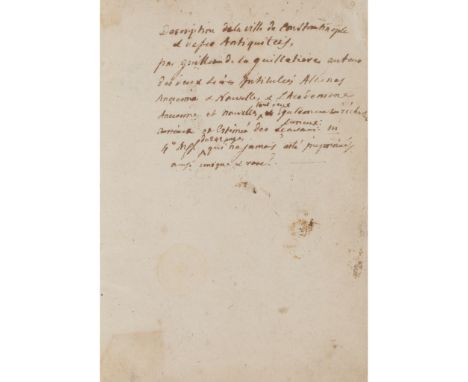 Description de la ville de Constantinople
& de ses Antiquitées,
par guillaume de la guilletiere auteur
des deux Livres Intitulés Athenes
Ancienne & Nouvelle, & Lacedemone
Ancienne et nouvelle, egalement
et Estimés des Scavans. in
4° Mss. qui n'a jamais esté imprimés
ainsi unique & rare.